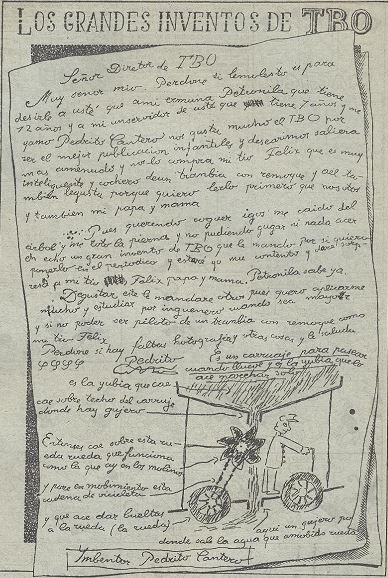 LOS GRANDES INVENTOS DE TBO
Señor Diretor de TBO
Muy señor mio. Perdone si le molesto es para
desirle a usté que a mi ermana Petronila que tiene
12 años y a mi un servidor de usté que tiene 7 años y me
yamo Pedrito Cantero nos gusta mucho el TBO por
ser el mejor publicacion infantiles y deseariмos saliera
mas amenudo y nos lo compra mi tio Felix que es muy
inteligueste y cochero de un trambia con remoque y a el ta-
mbien legusta porque quiero leerlo primero que nosotros
y tambien mi papa y mama
Pues queriendo coguer igos me caido del
árbol y me roto la pierna y no pudiendo gugar ni nada acer
en echo un gran invento de TBO que le mando por si quiere
ponerlo en el periodico y estaré yo mui contento y dare sorp
resa a mi tio Felix papa y mama. Petronila sabe ya.
Degustar este le mandare otro pues quiero aplicarme
mucho y estudiar por inguenero cuando sea mayor
y si no poder ser piloto de un trambia con remoque como
mi tio Felix
Perdone si hay faltas hotografia y otras cosas y le saluda
Pedrito
Es un carruage para pasear
cuando llueve y es la yubia que lo
ace marchar solo
es la yubia que cae
cae sobre techo del carruje
donde hay gujero
Entonses cae sobre esta ru-
eda rueda que funciona
como la que ay en los molinos
y pone en mobimiento esta
cadena de bicicleta
y que ace dar bueltas
a la rueda (la rueda)
aqui un gujero por
donde sale la agua que a mobido rueda
Imbentor Pedrito Cantero